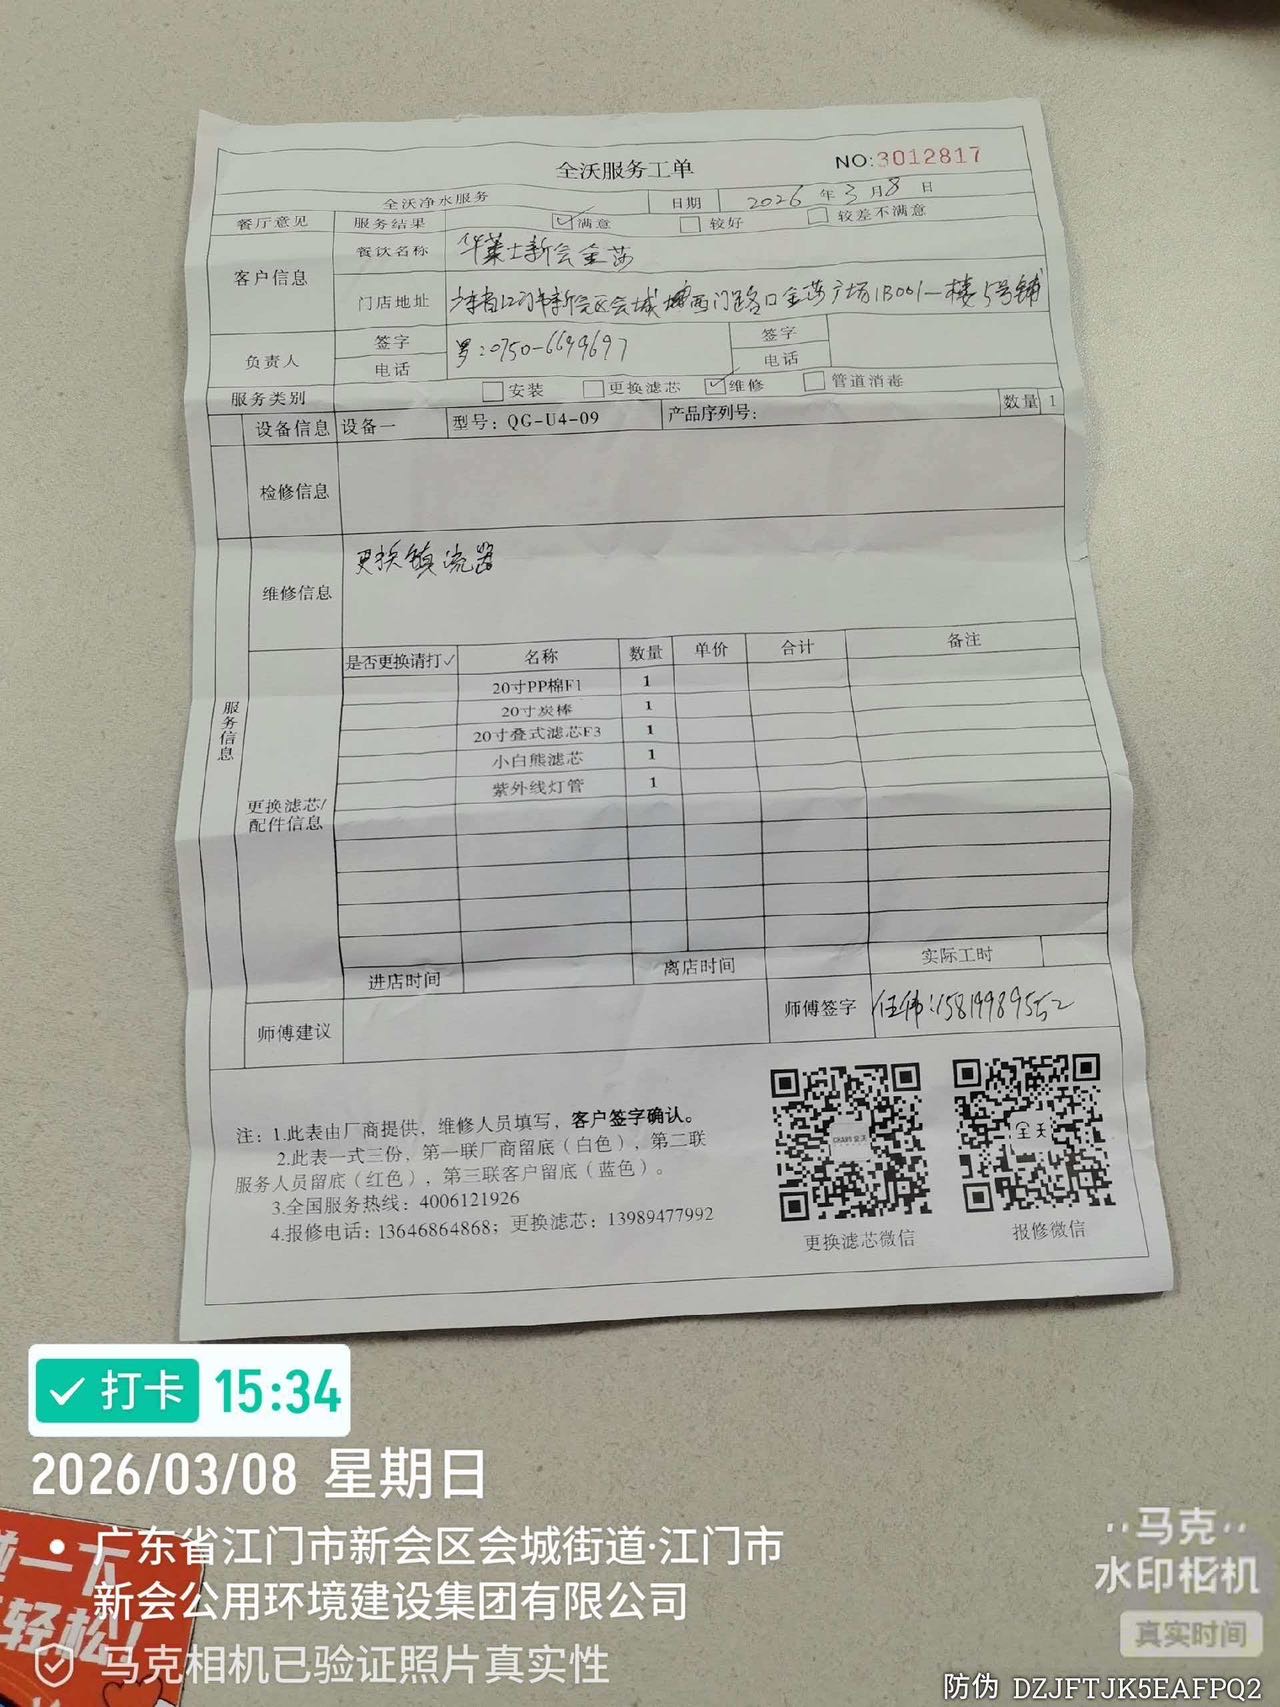 全沃服务工单
NO:3012817
全沃净水服务 日期 2026 年 3 月 8 日
餐厅意见 服务结果 满意 较好 较差不满意
客户信息 餐饮名称 华莱士新会金莎
门店地址 广东省江门市新会区会城 西门路口金莎广场1B001一楼5号铺
负责人 签字 电话 罗:0750-6699697 签字 电话
服务类别 安装 更换滤芯 维修 管道消毒
设备信息 设备一 型号:QG-U4-09 产品序列号: 数量 1
检修信息
维修信息 更换镇流器
服务信息
更换滤芯/
配件信息
是否更换请打✓ 名称 数量 单价 合计 备注
20寸PP棉F1 1
20寸炭棒 1
20寸叠式滤芯F3 1
小白熊滤芯 1
紫外线灯管 1
进店时间 离店时间 实际工时
师傅建议 师傅签字 任伟:15819989552
注:1.此表由厂商提供,维修人员填写,客户签字确认。
2.此表一式三份,第一联厂商留底(白色),第二联
服务人员留底(红色),第三联客户留底(蓝色)。
3.全国服务热线:4006121926
4.报修电话:13646864868;更换滤芯:13989477992
全天
更换滤芯微信 报修微信
打卡 15:34
2026/03/08 星期日
广东省江门市新会区会城街道·江门市
新会公用环境建设集团有限公司
马克相机已验证照片真实性
一下
轻松!
马克
水印相机
真实时间
防伪 DZJFTJK5EAFPQ2